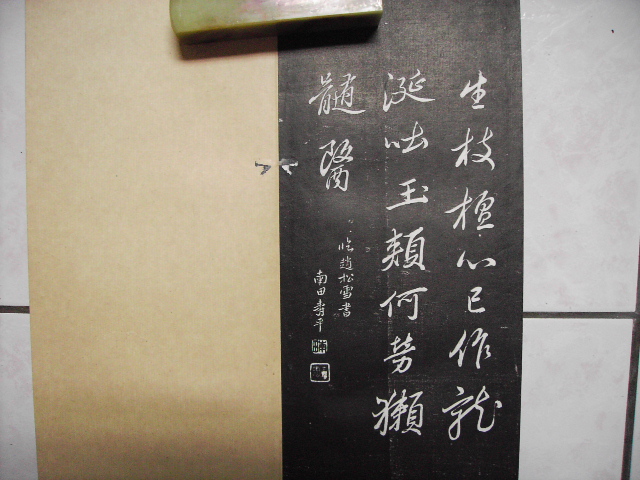 生枝檀心已作龍
涎吐玉頰何勞獺
髓醫
臨趙松雪書
南田壽平